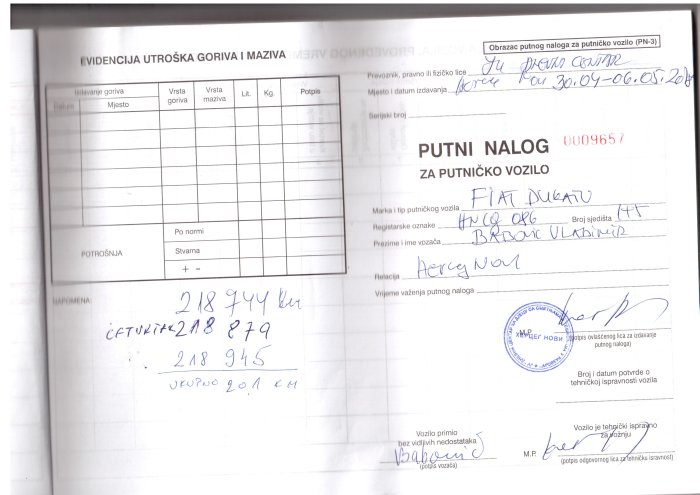 EVIDENCIJA UTROŠKA GORIVA I MAZIVA
Izdavanje goriva
Datum
Mjesto
Vrsta goriva
Vrsta maziva
Lit.
Kg.
Potpis
POTROŠNJA
Po normi
Stvarna
+ -
NAPOMENA:
218 744 km
ČETVRTAK 218 879
218 945
UKUPNO 201 KM
Obrazac putnog naloga za putničko vozilo (PN-3)
Prevoznik, pravno ili fizičko lice JU DNEVNI CENTAR
Mjesto i datum izdavanja 30.04-06.05.
Serijski broj
PUTNI NALOG 0009657
ZA PUTNIČKO VOZILO
Marka i tip putničkog vozila FIAT DUKATO
Registarske oznake HNCG 086 Broj sjedišta 1+5
Prezime i ime vozača VLADIMIR
Relacija Herceg Novi
Vrijeme važenja putnog naloga
ХЕРЦЕГ НОВИ
M.P.
(potpis ovlašćenog lica za izdavanje
putnog naloga)
Broj i datum potvrde o
tehničkoj ispravnosti vozila
Vozilo primio
bez vidljivih nedostataka
(potpis vozača)
Vozilo je tehnički ispravno
za vožnju
M.P.
(potpis odgovornog lica za tehničku ispravnost)